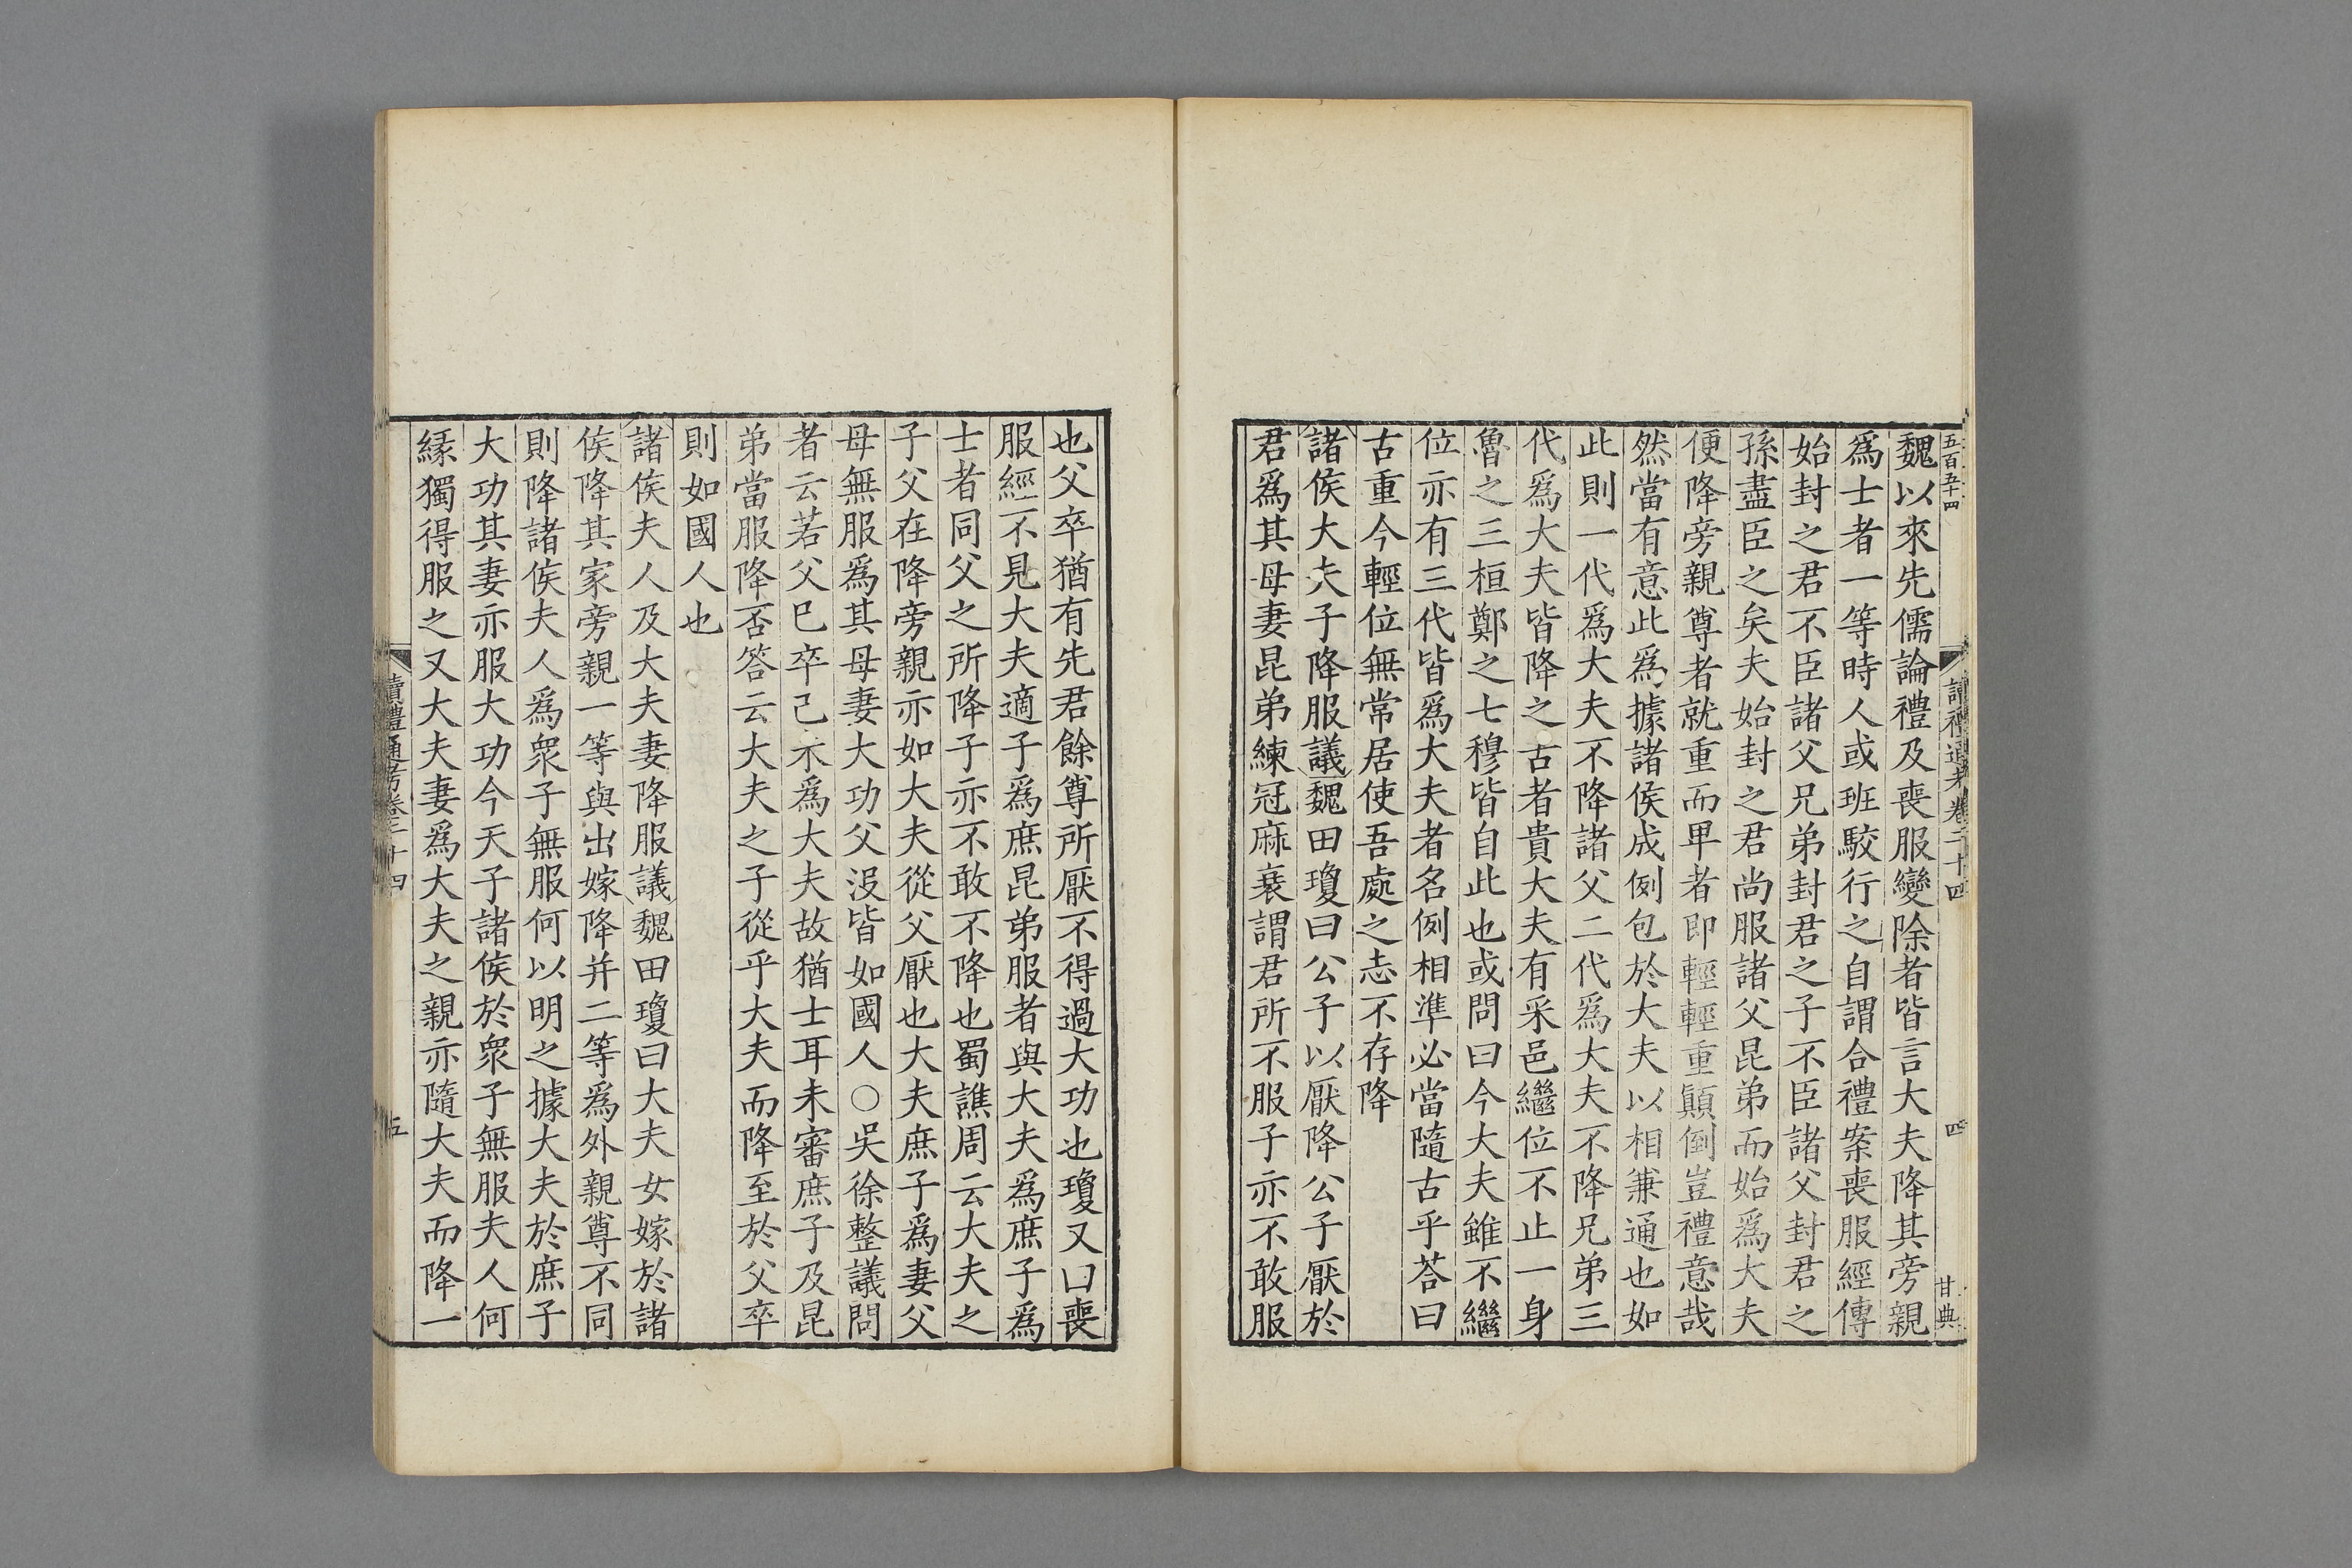 五百五十四
讀禮通考卷二十四
四
甘典
魏以來先儒論禮及喪服變除者皆言大夫降其旁親
爲士者一等時人或班駮行之自謂合禮案喪服經傳
始封之君不臣諸父兄弟封君之子不臣諸父封君之
孫盡臣之矣夫始封之君尚服諸父昆弟而始爲大夫
便降旁親尊者就重而卑者即輕輕重顚倒豈禮意哉
然當有意此爲據諸侯成例包於大夫以相兼通也如
此則一代爲大夫不降諸父二代爲大夫不降兄弟三
代爲大夫皆降之古者貴大夫有采邑繼位不止一身
魯之三桓鄭之七穆皆自此也或問曰今大夫雖不繼
位亦有三代皆爲大夫者名例相準必當隨古乎荅曰
古重今輕位無常居使吾處之志不存降
諸侯大夫子降服議魏田瓊曰公子以厭降公子厭於
君爲其母妻昆弟練冠麻衰謂君所不服子亦不敢服
也父卒猶有先君餘尊所厭不得過大功也瓊又曰喪
服經不見大夫適子爲庶昆弟服者與大夫爲庶子爲
士者同父之所降子亦不敢不降也蜀譙周云大夫之
子父在降旁親亦如大夫從父厭也大夫庶子爲妻父
母無服爲其母妻大功父沒皆如國人○吳徐整議問
者云若父已卒己不爲大夫故猶士耳未審庶子及昆
弟當服降否答云大夫之子從乎大夫而降至於父卒
則如國人也
諸侯夫人及大夫妻降服議魏田瓊曰大夫女嫁於諸
侯降其家旁親一等與出嫁降并二等爲外親尊不同
則降諸侯夫人爲衆子無服何以明之據大夫於庶子
大功其妻亦服大功今天子諸侯於衆子無服夫人何
緣獨得服之又大夫妻爲大夫之親亦隨大夫而降一
讀禮通考卷二十四
五